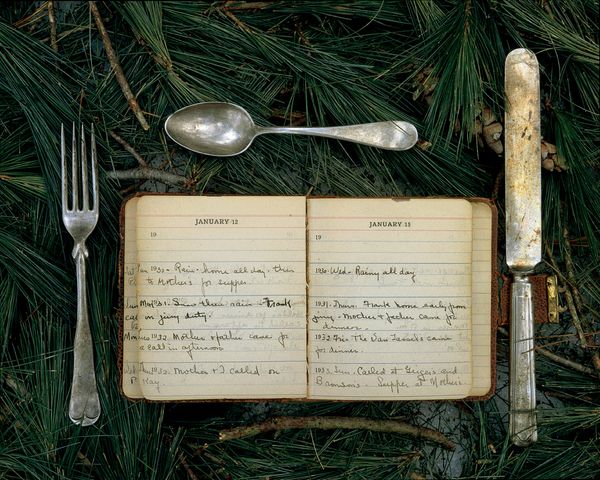 JANUARY 12
19
1930 - Rain - home all day - then
to Mother's for supper.
1931. Snow then rain - Frank
call on jury duty.
1932. Mother & father came for
a call in afternoon
Mother & I called on
JANUARY 13
19
1930 - Wed - Rainy all day
1931. Frank home early from
jury - Mother & father came for
dinner.
1932 The Van
for dinner.
1933. Called at and
Supper at Mother